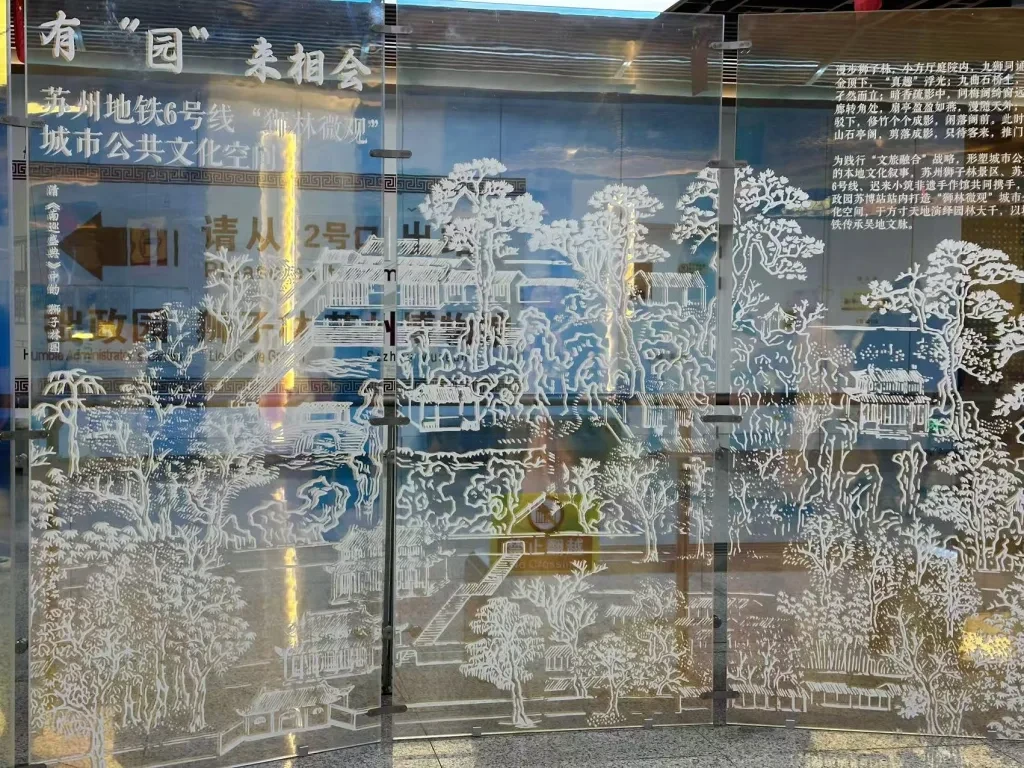 有“园”来相会
苏州地铁6号线 “狮林微观”
城市公共文化空间
漫步狮子林，小方厅庭院内，九狮同
金顶下，“真趣”浮光；九曲石桥上，
然而立；暗香疏影中，问梅阁纳窗远
廊转角处，扇亭盈盈如燕，漫随天外，
驳下，修竹个个成影，闲落阁前。此时
山石亭阁，剪落成影，只待客来，推门
为践行“文旅融合”战略，形塑城市公
的本地文化叙事，苏州狮子林景区、苏
6号线、迟来小筑非遗手作馆共同携手，
政园苏博站站内打造“狮林微观”城市
化空间，于方寸天地演绎园林大千，以
铁传承吴地文脉。
请从 2号口 出
Please exit from
拙政园 狮子林 苏州博物馆
Humble Administrator's Garden Lion Grove Garden Suzhou Museum
禁止